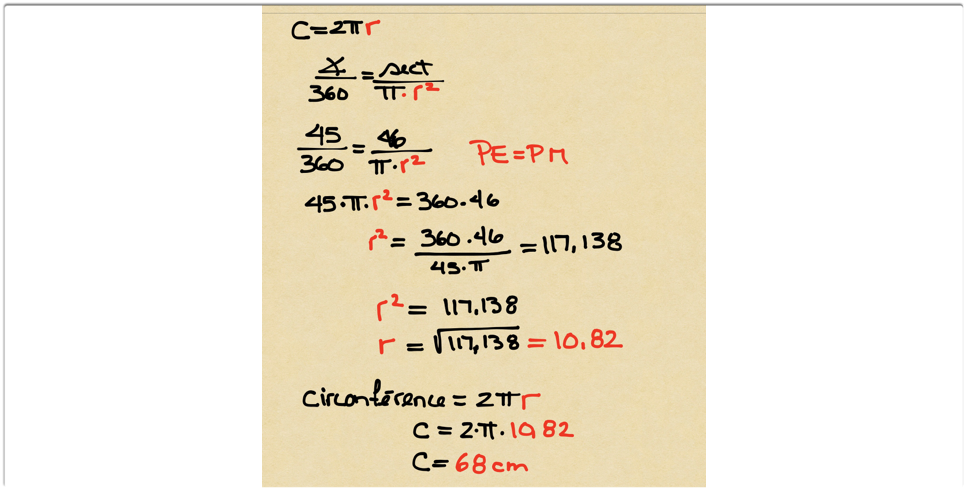 C=2πr
∡/360 = sect/π·r²
45/360 = 46/π·r² PE=PM
45·π·r²=360·46
r² = 360·46/45·π = 117,138
r² = 117,138
r = √117,138 = 10,82
Circonférence = 2πr
C = 2·π·10,82
C = 68 cm